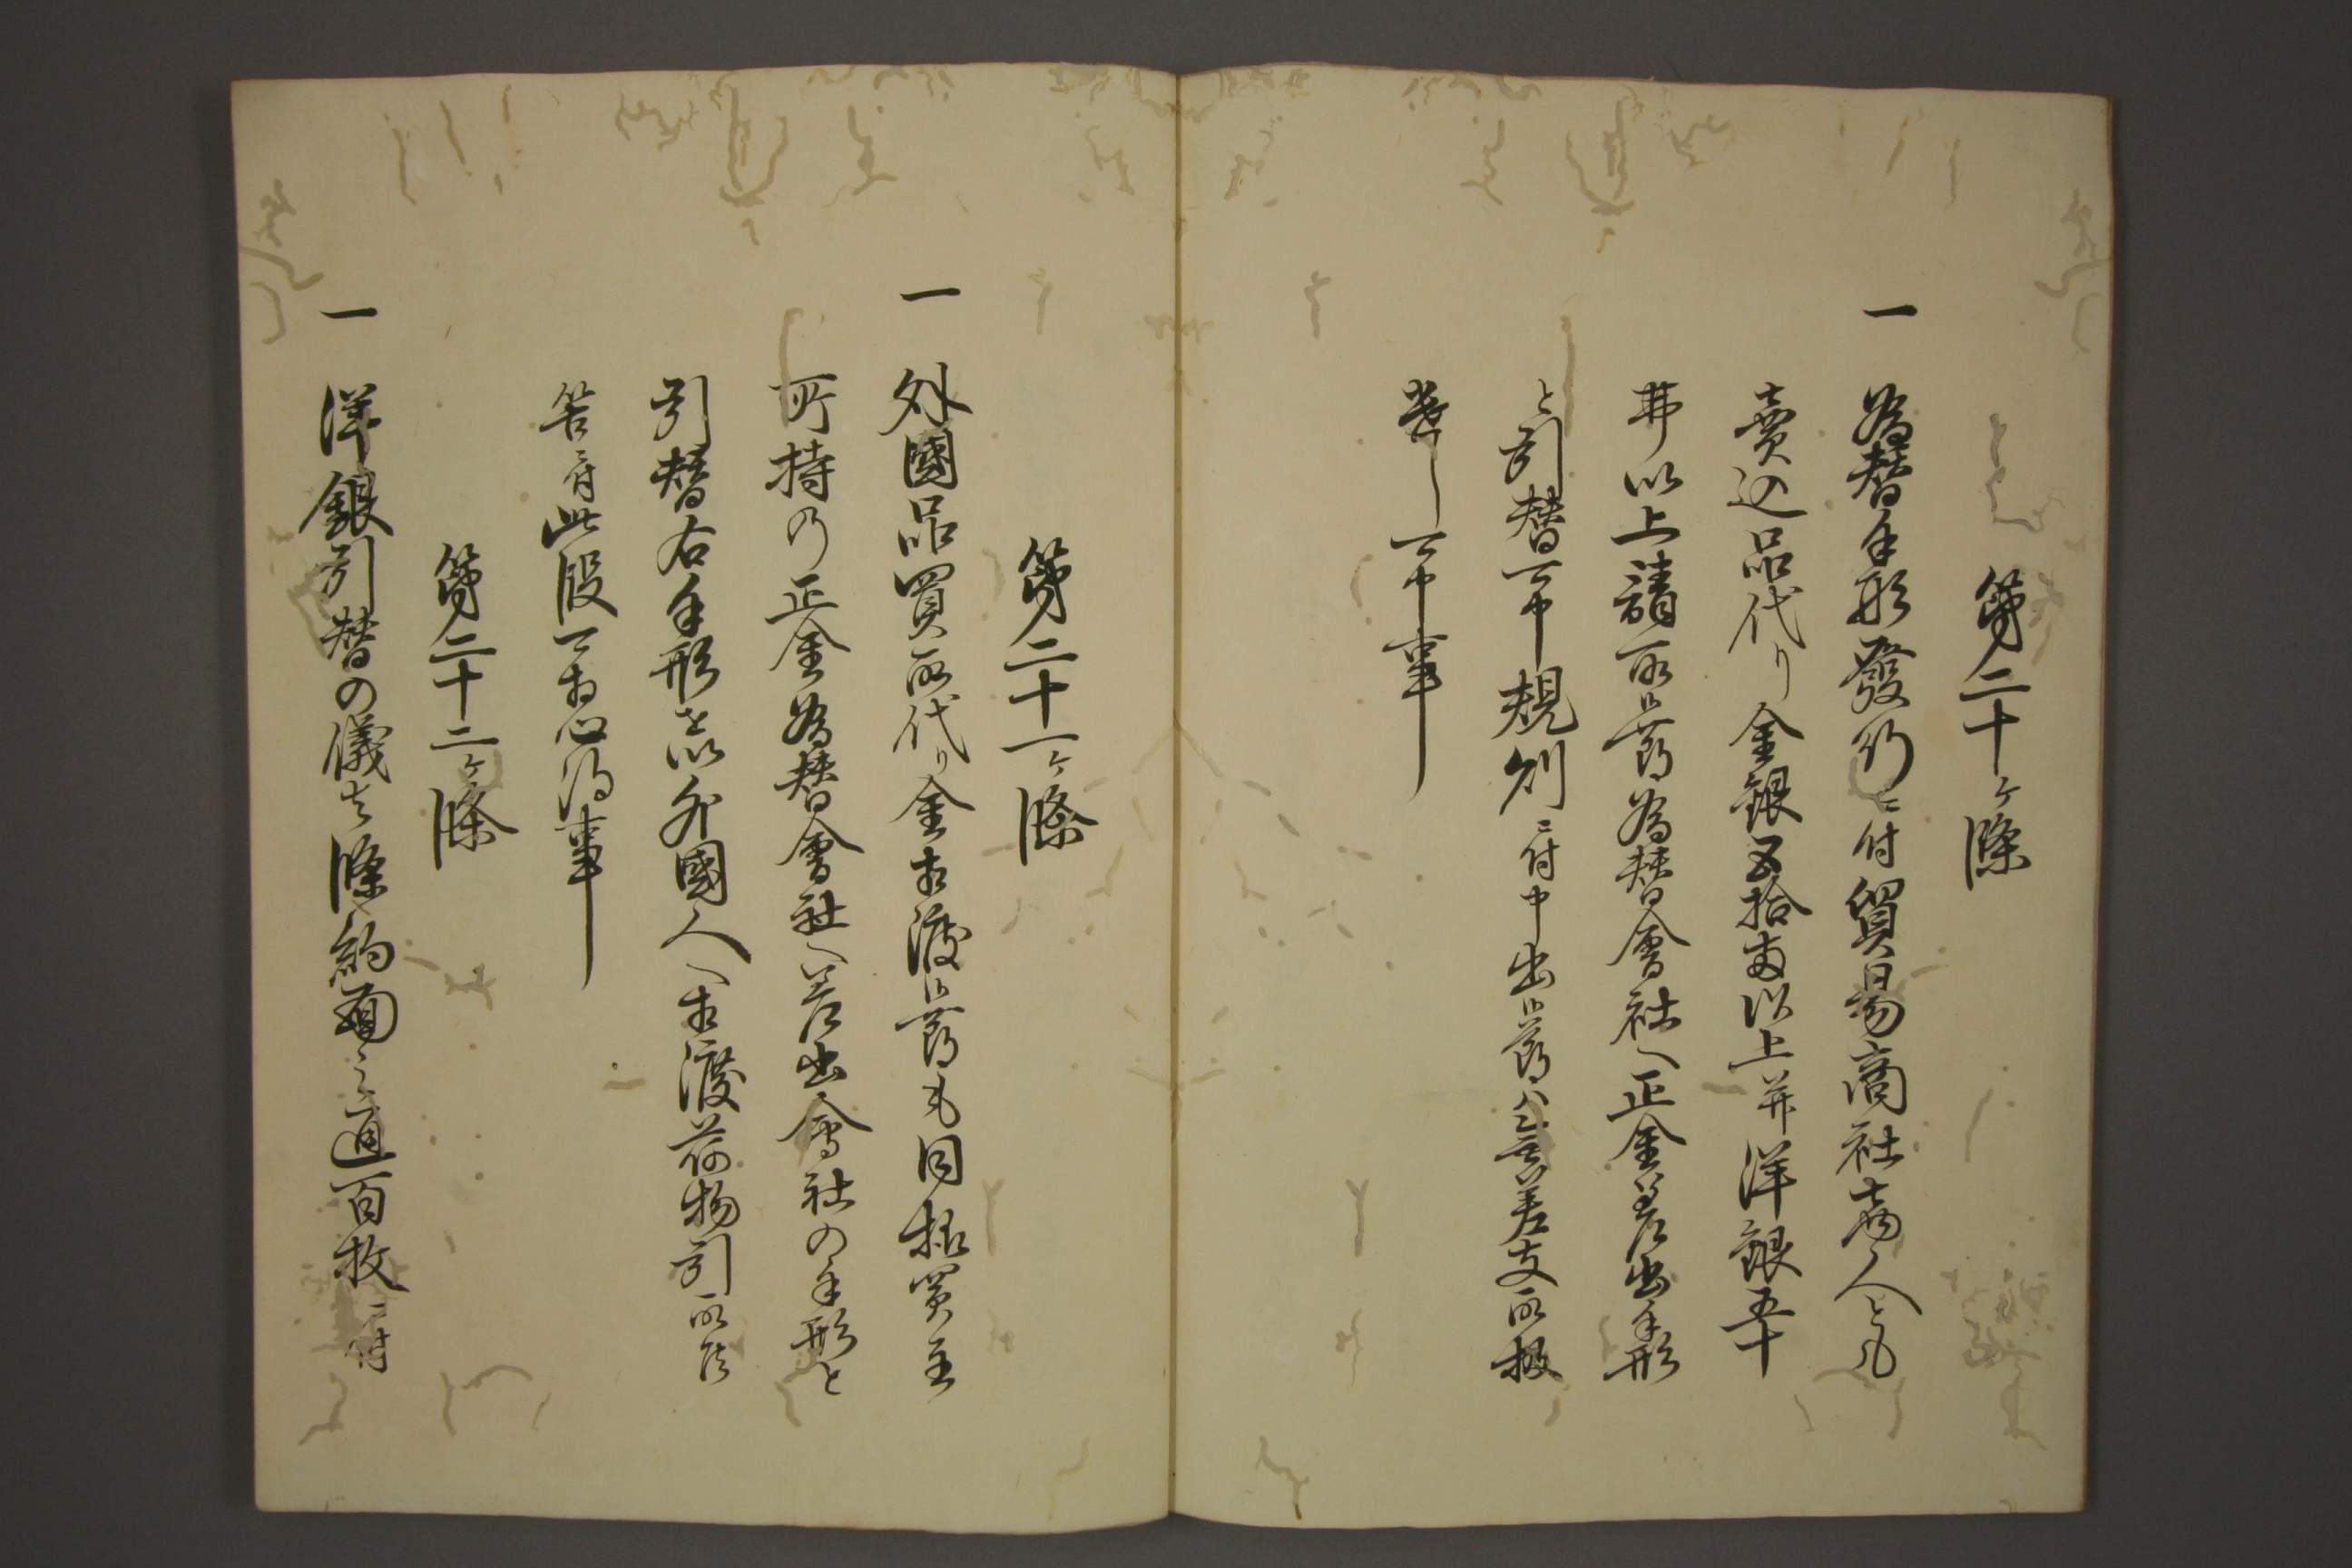 第二十ヶ條
一 為替手形發行ニ付貿易商社商人とも
賣込品代り金銀五拾両以上并洋銀五十
弗以上請取候節為替會社へ正金差出手形
と引替可申規則ニ付申出候節ハ無差支取扱
遣し可申事
第二十一ヶ條
一 外國品買取代り金相渡候節も同様買主
所持の正金為替會社へ差出會社の手形と
引替右手形を以外國人へ相渡荷物引取候
筈ニ付此段可相心得事
第二十二ヶ條
一 洋銀引替の儀者條約面之通百枚ニ付